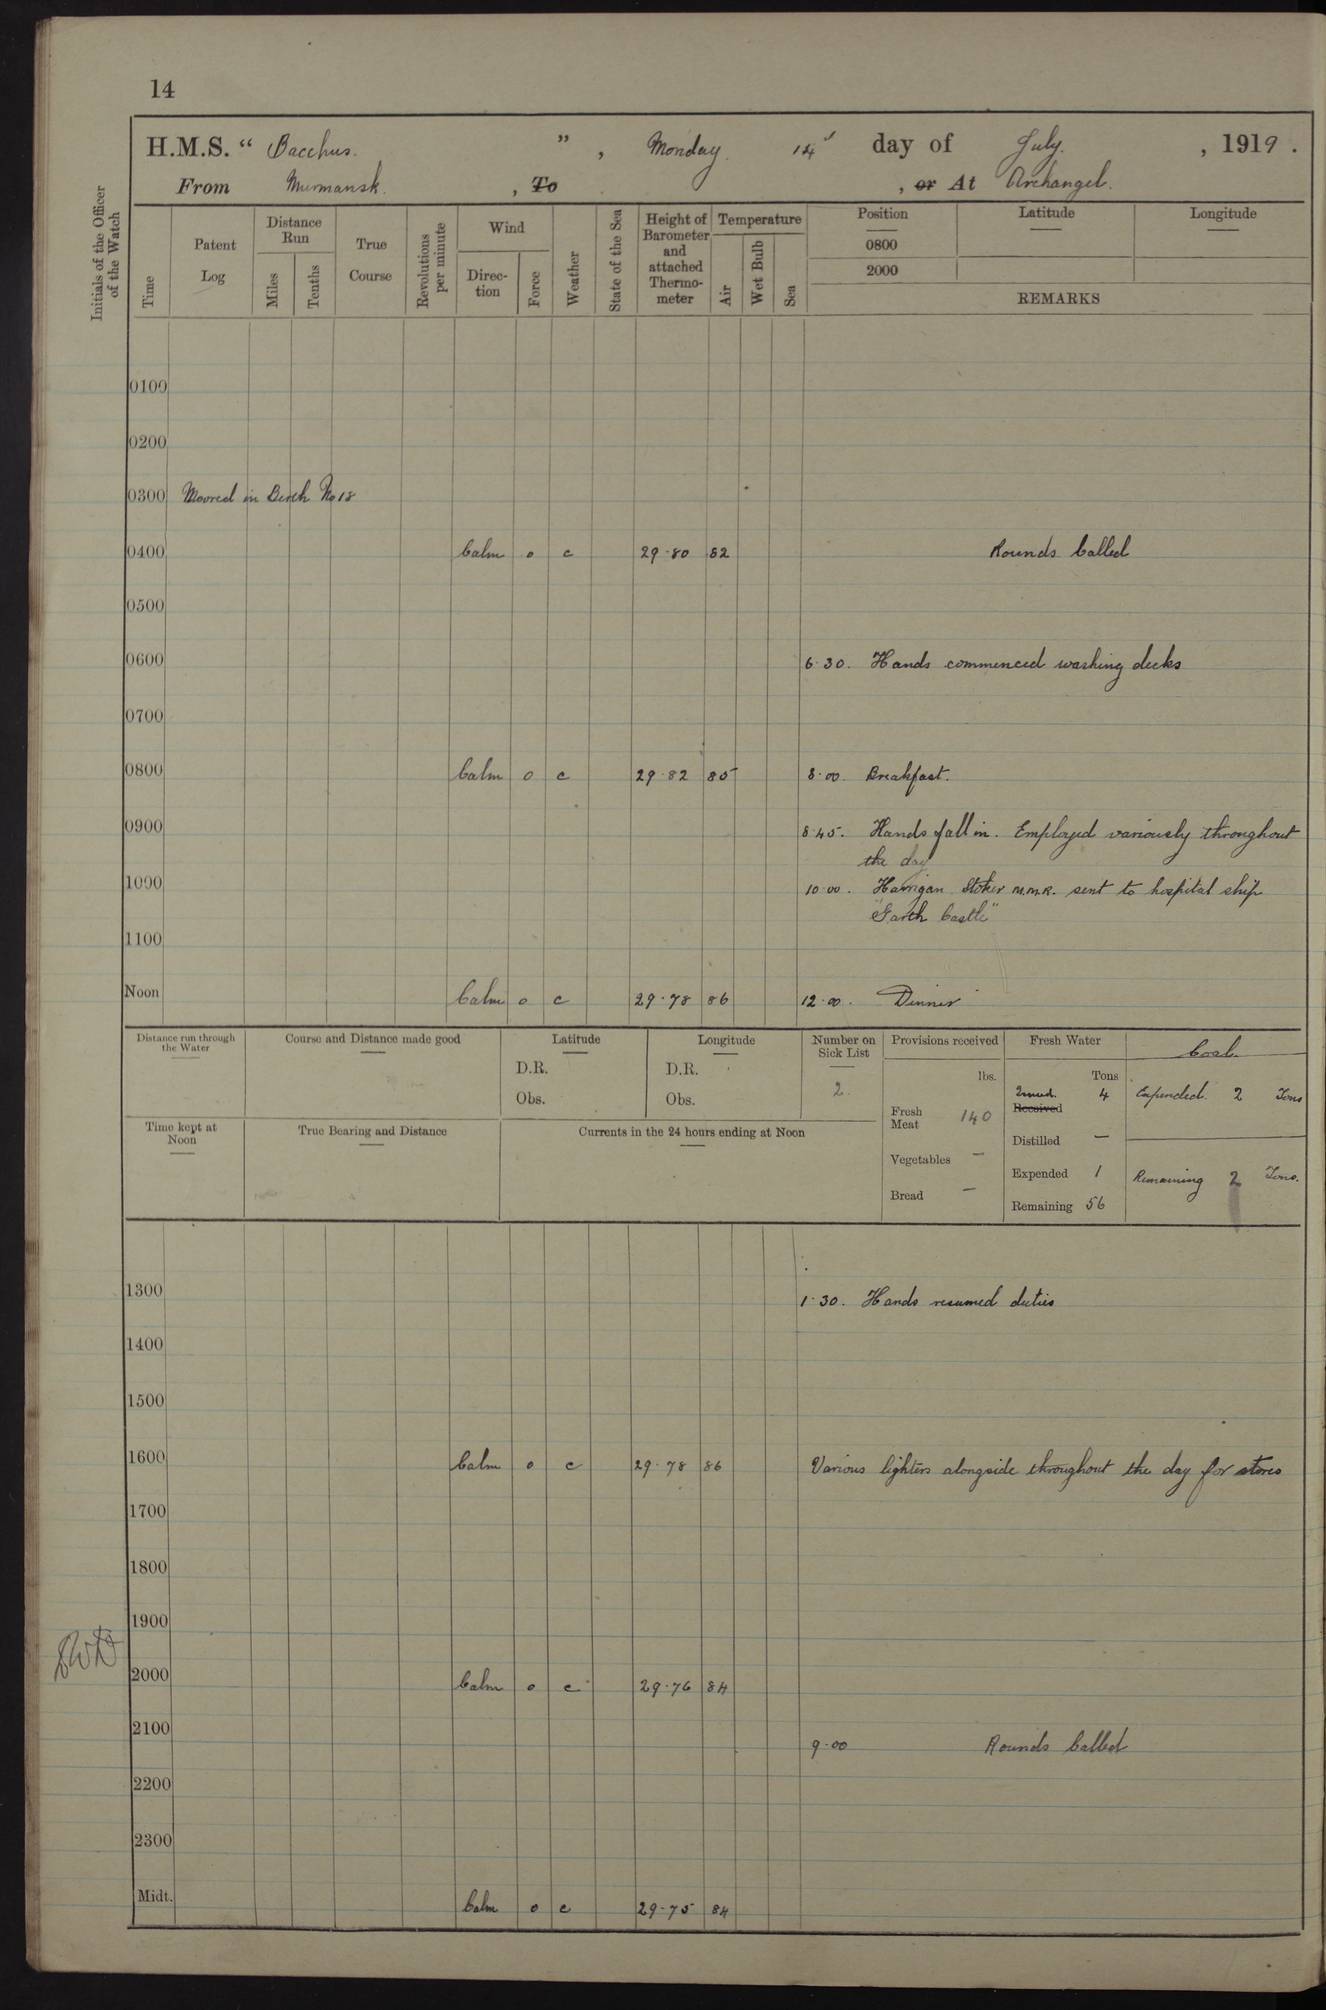 14
H.M.S. “ Bacchus. ” , Monday 14th day of July. , 1919 .
From Murmansk. , To , or At Archangel.
Initials of the Officer of the Watch
Time
Patent Log
Distance Run
Miles
Tenths
True Course
Revolutions per minute
Wind
Direction
Force
Weather
State of the Sea
Height of Barometer and attached Thermometer
Temperature
Air
Wet Bulb
Sea
Position Latitude Longitude
0800
2000
REMARKS
0100
0200
0300 Moored in Berth No 18
0400 Calm 0 c 29·80 82 Rounds Called
0500
0600 6·30. Hands commenced washing decks
0700
0800 Calm 0 c 29·82 85 8·00. Breakfast.
0900 8·45. Hands fall in. Employed variously throughout
the day
1000 10·00. Harrigan Stoker M.M.R. sent to hospital ship
"Garth Castle"
1100
Noon Calm 0 c 29·78 86 12·00. Dinner
Distance run through the Water
Course and Distance made good
Latitude
D.R.
Obs.
Longitude
D.R.
Obs.
Number on Sick List
2
Provisions received
lbs.
Fresh Meat 140
Vegetables —
Bread —
Fresh Water
Tons
Received 4
Distilled —
Expended 1
Remaining 56
Coal.
Expended. 2 Tons
Remaining 2 Tons.
Time kept at Noon
True Bearing and Distance
Currents in the 24 hours ending at Noon
1300 1·30. Hands resumed duties
1400
1500
1600 Calm 0 c 29·78 86 Various lighters alongside throughout the day for stores
1700
1800
1900
2000 Calm 0 c 29·76 84
2100 9·00 Rounds Called
2200
2300
Midt. Calm 0 c 29·75 84